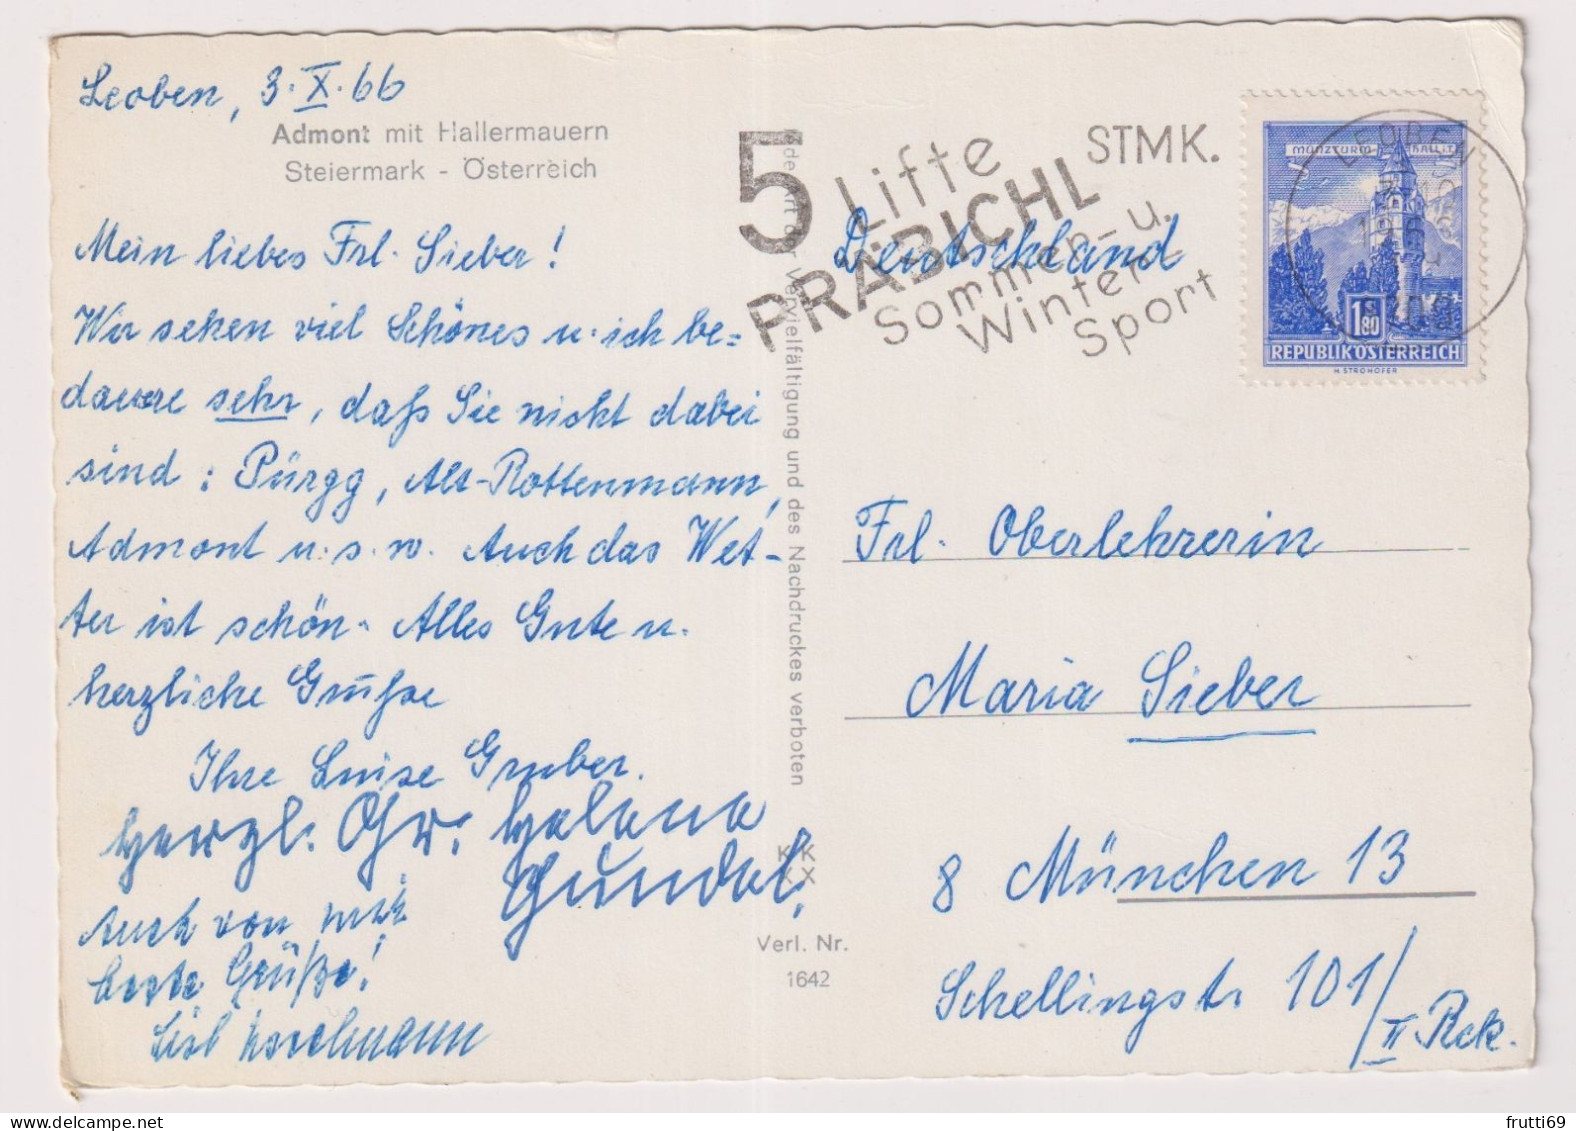 Leoben, 3. X. 66
Admont mit Hallermauern
Steiermark - Österreich
Mein liebes Frl. Sieber!
Wir sehen viel Schönes u. ich be=
dauere sehr, daß Sie nicht dabei
sind: Pürgg, Alt-Rottenmann,
Admont u. s. w. Auch das Wet-
ter ist schön. Alles Gute u.
herzliche Grüße
Ihre Luise Gruber.
herzl. Gr. Helene
Gundel.
Auch von mir
beste Grüße!
Verl. Nr.
1642
jeder Art der Vervielfältigung und des Nachdruckes verboten
KK
XX
5 Lifte
PRÄBICHL
Sommer- u.
Winter
Sport
STMK.
LEOBEN
MÜNZTURM HALL i.T.
1.80
REPUBLIK ÖSTERREICH
H. STROHOFER
Deutschland
Frl. Oberlehrerin
Maria Sieber
8 München 13
Schellingstr. 101/
II Rck.
frutti69